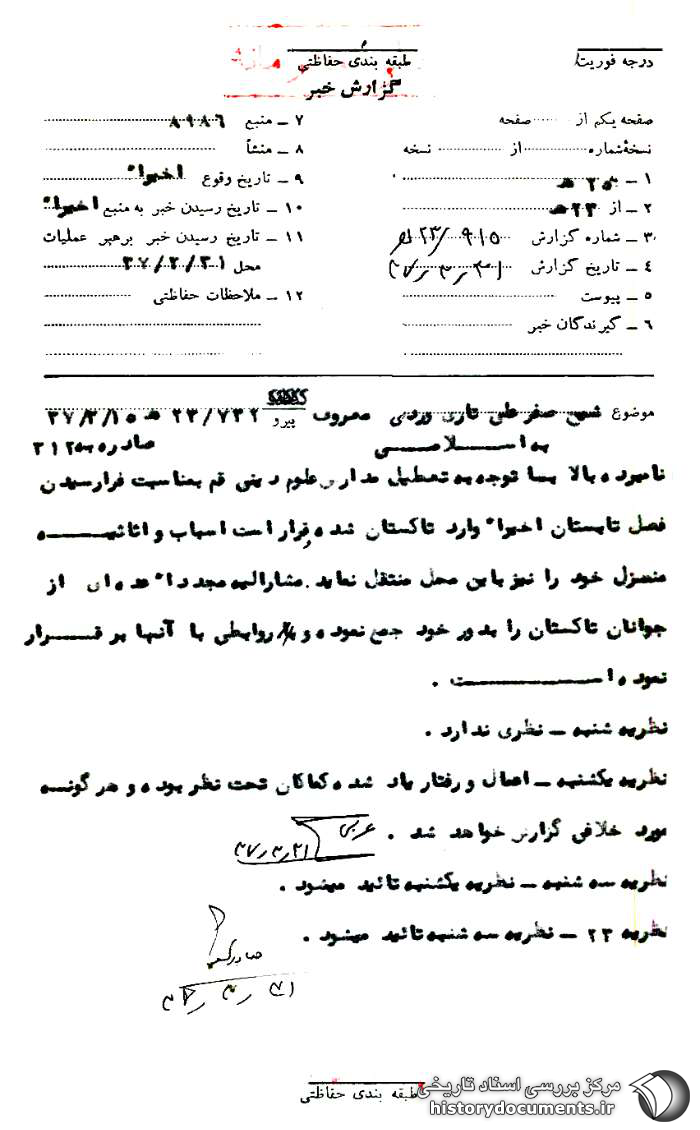 درجه فوریت
طبقه بندی حفاظتی
گزارش خبر
صفحه یکم از ........ صفحه
نسخهٔ شماره ........ از ........ نسخه
۱ ـ به ۲۵ هـ
۲ ـ از ۲۳ هـ
۳ ـ شماره گزارش
۴ ـ تاریخ گزارش
۵ ـ پیوست
۶ ـ گیرندگان خبر
۷ ـ منبع ۸۹۸۶
۸ ـ منشأ
۹ ـ تاریخ وقوع اخیراً
۱۰ ـ تاریخ رسیدن خبر به منبع اخیراً
۱۱ ـ تاریخ رسیدن خبر برهبر عملیات
محل ۳۷/۲/۳۱
۱۲ ـ ملاحظات حفاظتی
موضوع شیخ صفرعلی تاری وردی معروف پیرو ۲۳/۷۳۲ هـ ۳۷/۳/۱۵
به اسلامی صادره به ۳۱۲
نامبرده بالا با توجه به تعطیل مدارس علوم دینی قم بمناسبت فرارسیدن
فصل تابستان اخیراً وارد تاکستان شده قرار است اسباب و اثاثیه
منزل خود را نیز باین محل منتقل نماید. مشارالیه مجدداً عده ای از
جوانان تاکستان را بدور خود جمع نموده و روابطی با آنها برقرار
نموده است .
نظریه شنبه ـ نظری ندارد .
نظریه یکشنبه ـ اعمال و رفتار یاد شده کماکان تحت نظر بوده و هر گونه
مورد خلافی گزارش خواهد شد .
نظریه سه شنبه ـ نظریه یکشنبه تائید میشود .
نظریه ۲۳ ـ نظریه سه شنبه تائید میشود .
طبقه بندی حفاظتی
مرکز بررسی اسناد تاریخی
historydocuments.ir